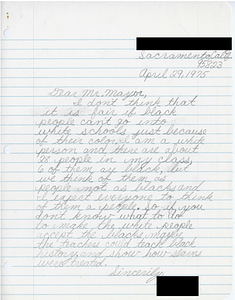 Sacramento Calif
95823
April 29, 1975
Dear Mr. Mayor,
I don't think that
it is fair if black
people can't go into
white schools just because
of their color. I am a white
person and there are about
28 people in my class,
6 of them are black, but
we think of them as
people not as blacks and
I expect everyone to think
of them as people. So if you
don't know what to do
to make the white people
accept the blacks, maybe
the teachers could teach black
history and show how slaves
were treated.
Sincerely,